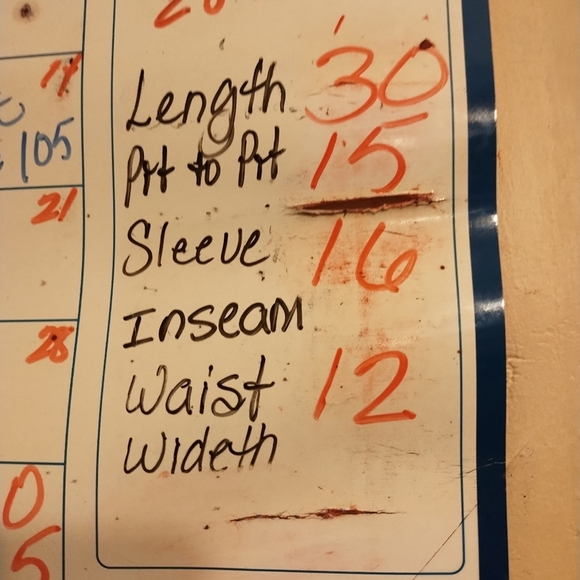 Length 30
Prt to Prt 15
Sleeve 16
Inseam
Waist 12
Wideth
14
105
21
28
0
5